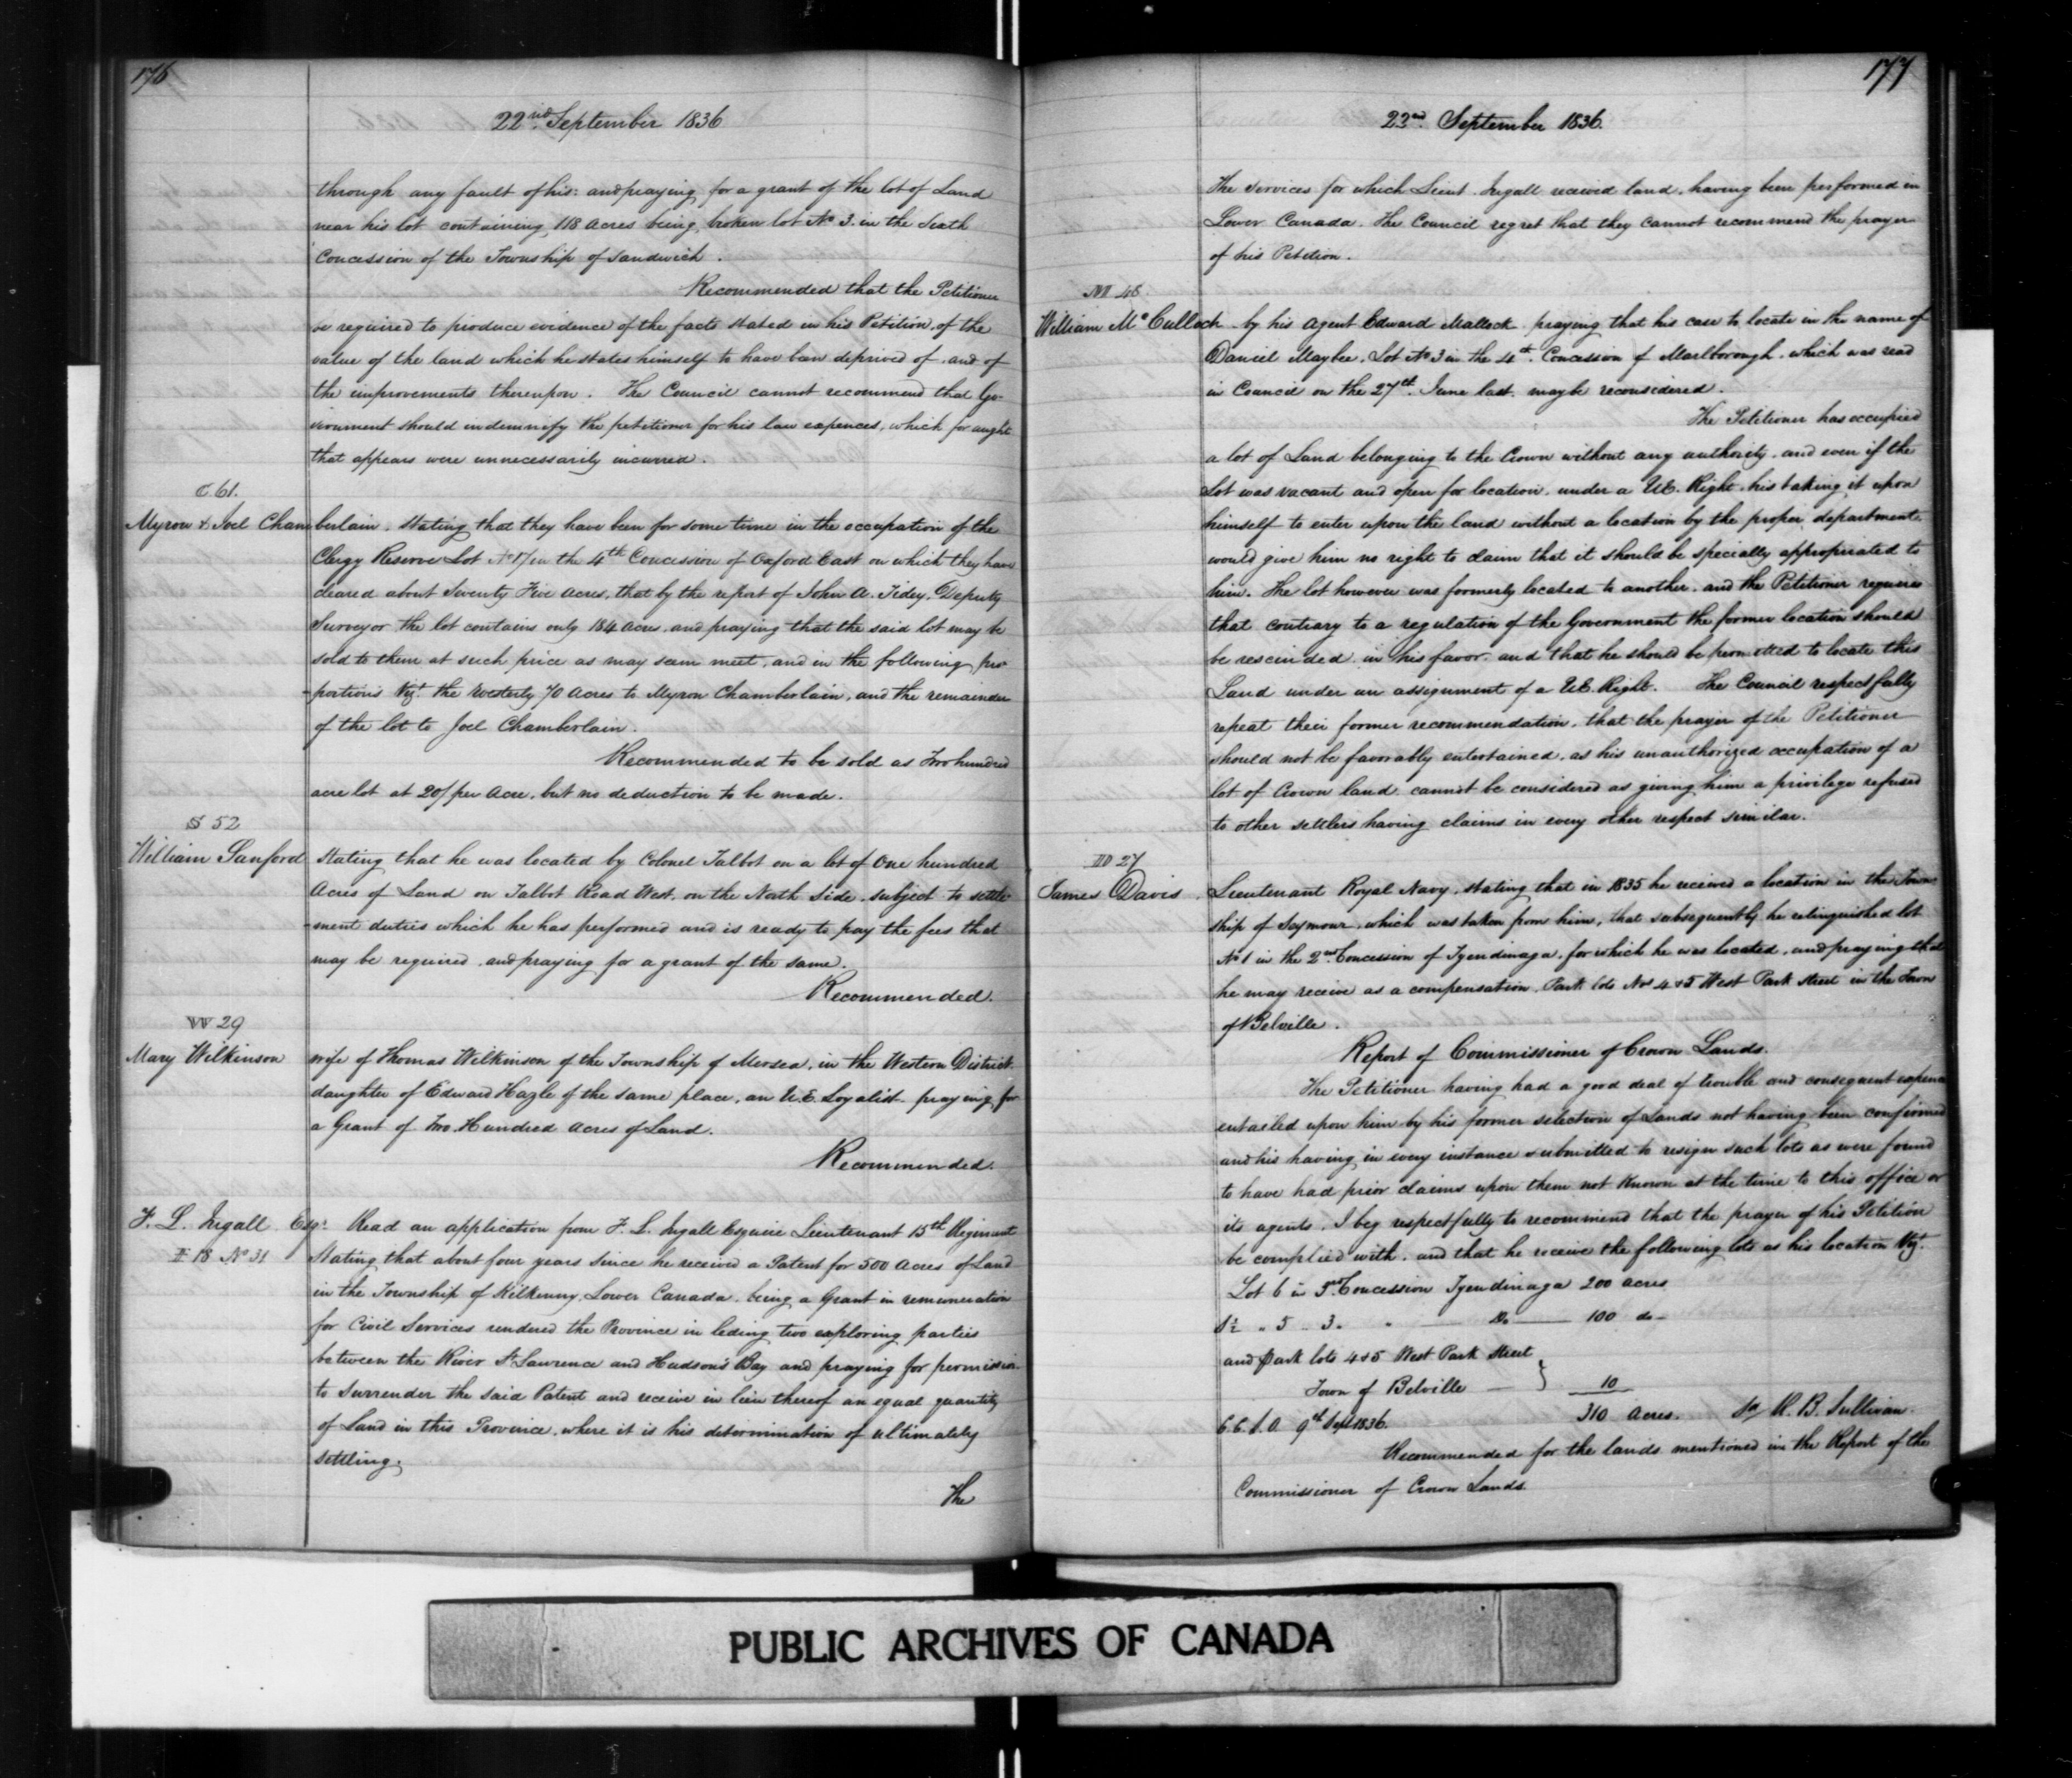 176
22nd September 1836
through any fault of his: and praying for a grant of the lot of Land
near his lot containing 118 acres being broken lot No 3 in the Sixth
Concession of the Township of Sandwich.
Recommended that the Petitioner
be required to produce evidence of the facts stated in his Petition, of the
value of the land which he states himself to have been deprived of and of
the improvements thereupon. The Council cannot recommend that Go-
vernment should indemnify the petitioner for his law expences, which for aught
that appears were unnecessarily incurred.
C 61.
Myron & Joel Chamberlain, stating that they have been for some time in the occupation of the
Clergy Reserve Lot No 17 in the 4th Concession of Oxford East on which they have
cleared about Seventy Five Acres, that by the report of John A. Tidey, Deputy
Surveyor the lot contains only 184 acres, and praying that the said lot may be
sold to them at such price as may seem meet, and in the following pro-
-portions Vizt the Westerly 70 Acres to Myron Chamberlain, and the remainder
of the lot to Joel Chamberlain.
Recommended to be sold as Two hundred
acre lot at 20/ per Acre, but no deduction to be made.
S 52
William Sanford stating that he was located by Colonel Talbot on a lot of One hundred
Acres of Land on Talbot Road West, on the North Side, subject to settle-
-ment duties which he has performed and is ready to pay the fees that
may be required and praying for a grant of the same.
Recommended.
W 29
Mary Wilkinson wife of Thomas Wilkinson of the Township of Mersea, in the Western District
daughter of Edward Hazle of the same place, an U.E. Loyalist praying for
a Grant of Two Hundred acres of Land.
Recommended.
F. L. Ingall Esqr. Read an application from F. L. Ingall Esquire Lieutenant 15th Regiment
I 18 No 31 Stating that about four years since he received a Patent for 500 Acres of Land
in the Township of Kilkenny, Lower Canada, being a Grant in remuneration
for Civil Services rendered the Province in leding two exploring parties
between the River St Lawrence and Hudson's Bay and praying for permission
to Surrender the said Patent and receive in lieu thereof an equal quantity
of Land in this Province, where it is his determination of ultimately
settling.
The
177
22nd September 1836.
The services for which Lieut. Ingall received land, having been performed in
Lower Canada. The Council regret that they cannot recommend the prayer
of his Petition.
M 48
William McCulloch by his Agent Edward Malloch praying that his case to locate in the name of
Daniel Maybee, Lot No 3 in the 4th Concession of Marlborough, which was read
in Council on the 27th June last may be reconsidered.
The Petitioner has occupied
a lot of Land belonging to the Crown without any authority and even if the
Lot was vacant and open for location, under a U.E. Right, his taking it upon
himself to enter upon the land without a location by the proper department
would give him no right to claim that it should be specially appropriated to
him. The lot however was formerly located to another, and the Petitioner requires
that contrary to a regulation of the Government the former location should
be rescinded in his favor and that he should be permitted to locate this
Land under an assignment of a U.E. Right. The Council respectfully
repeat their former recommendation, that the prayer of the Petitioner
should not be favorably entertained, as his unauthorized occupation of a
lot of Crown land cannot be considered as giving him a privilege refused
to other settlers having claims in every other respect similar.
D 27
James Davis Lieutenant Royal Navy, stating that in 1835 he received a location in the Town-
ship of Seymour, which was taken from him, that subsequently he relinquished lot
No 1 in the 2nd Concession of Tyendinaga, for which he was located, and praying that
he may receive as a compensation, Park lots Nos 4 & 5 West Park Street in the Town
of Belville.
Report of Commissioner of Crown Lands.
The Petitioner having had a good deal of trouble and consequent expence
entailed upon him by his former selection of Lands not having been confirmed
and his having in every instance submitted to resign such lots as were found
to have had prior claims upon them not known at the time to this office or
its agents, I beg respectfully to recommend that the prayer of his Petition
be complied with, and that he receive the following lots as his location Vizt.
Lot 6 in Concession Tyendinaga 200 acres
½ " 5 " 3 " — Do — 100 do
and Park lots 4 & 5 West Park Street
Town of Belville — } 10
310 Acres. Sd/ R. B. Sullivan.
C.C.L.O. 9th Sept 1836.
Recommended for the lands mentioned in the Report of the
Commissioner of Crown Lands.
PUBLIC ARCHIVES OF CANADA